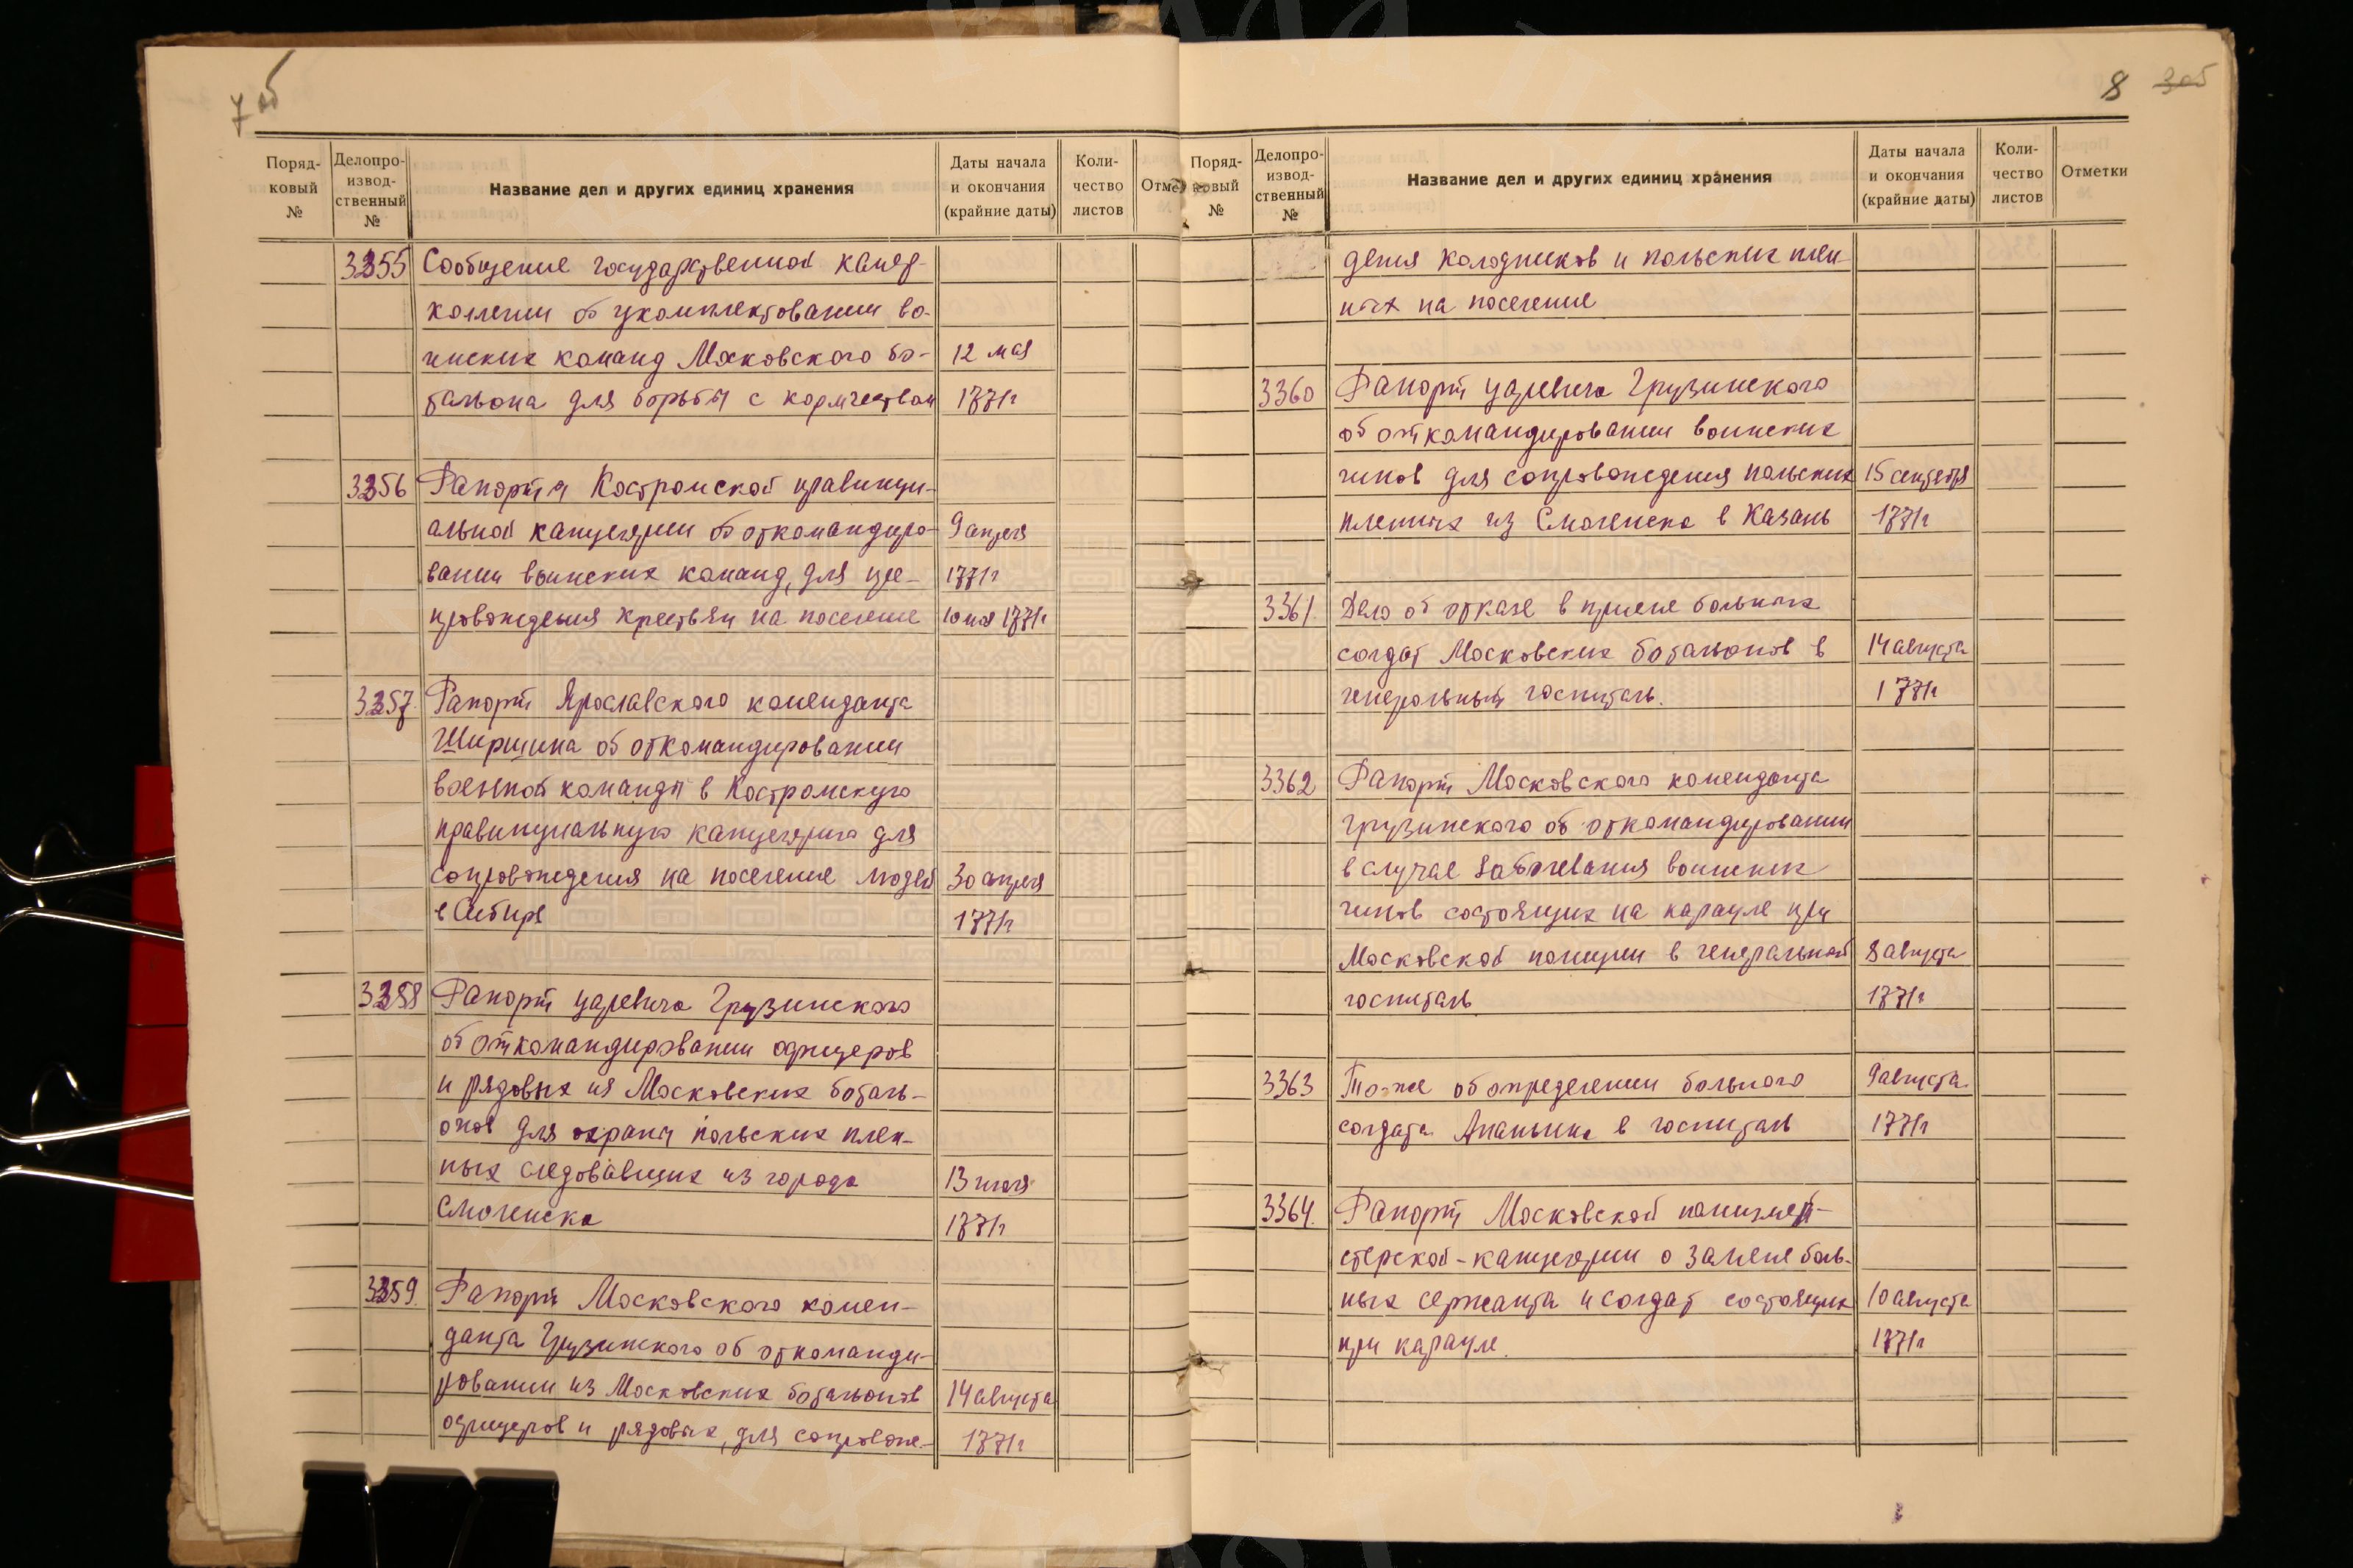 7 об
Поряд-
ковый
№
Делопро-
извод-
ственный
№
Название дел и других единиц хранения
Даты начала
и окончания
(крайние даты)
Коли-
чество
листов
Отме
3355 Сообщение государственной камер-
коллегии об укомплектовании во-
инских команд Московского ба- 12 мая
тальона для борьбы с кормчеством 1771г
3356 Рапорты Костромской правинци-
альной канцелярии об откомандиро- 9 апреля
вании воинских команд, для пре- 1771г
провождения крестьян на поселение 10 мая 1771г
3357. Рапорт Ярославского коменданта
Ширшина об откомандировании
военной команды в Костромскую
правинциальную канцелярию для
сопровождения на поселение людей 30 апреля
в Сибирь 1771г
3358 Рапорт царевича Грузинского
об откомандировании офицеров
и рядовых из Московских баталь-
онов для охраны польских плен-
ных следовавших из города 13 июля
Смоленска 1771г
3359. Рапорт Московского комен-
данта Грузинского об откоманди-
ровании из Московских батальонов 14 августа
офицеров и рядовых, для сопровож- 1771г
8 3об
Поряд-
ковый
№
Делопро-
извод-
ственный
№
Название дел и других единиц хранения
Даты начала
и окончания
(крайние даты)
Коли-
чество
листов
Отметки
дения колодников и польских плен
ных на поселение
3360 Рапорт царевича Грузинского
об откомандировании воинских
чинов для сопровождения польских 15 сентября
пленных из Смоленска в Казань 1771г
3361. Дело об отказе в приеме больных
солдат Московских батальонов в 14 августа
генеральный госпиталь. 1771г
3362 Рапорт Московского коменданта
Грузинского об откомандировании
в случае заболевания воинских
чинов состоящих на карауле при
Московской полиции в генеральной 8 августа
госпиталь 1771г
3363 То-же об определении больного 9 августа
солдата Ананьина в госпиталь 1771г
3364. Рапорт Московской полицмей-
стерской-канцелярии о замене боль-
ных сержанта и солдат состоящих 10 августа
при карауле. 1771г